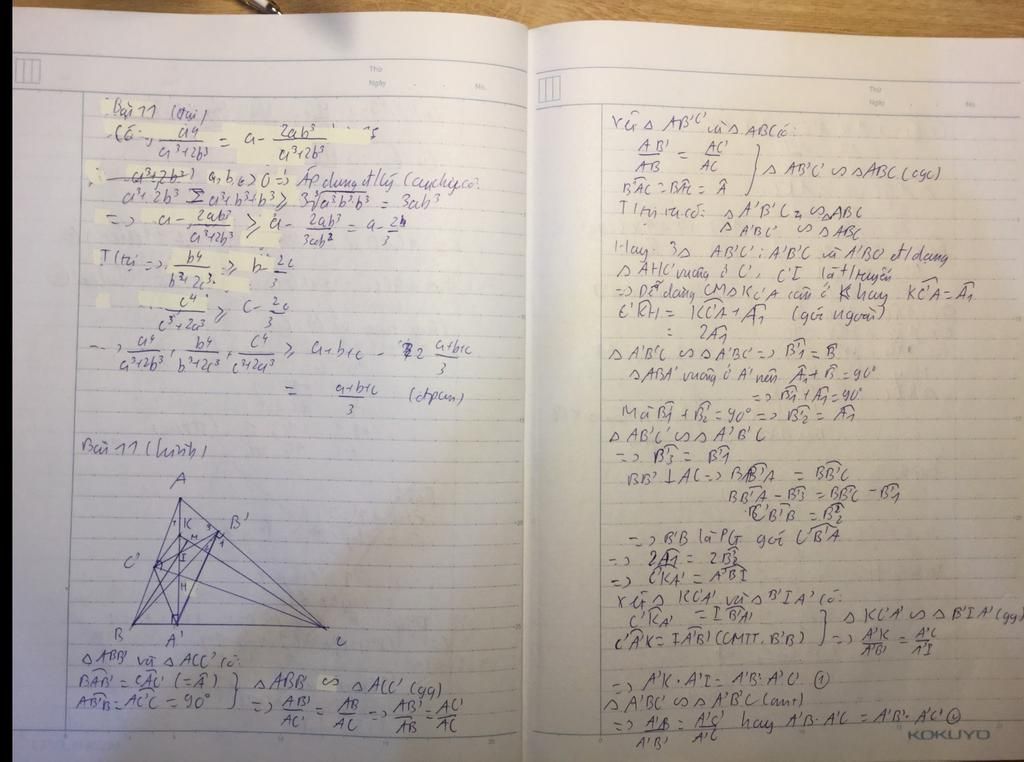 Thứ
Ngày
No.
Bài 11 (đại)
Có: a^4/(a^3+2b^3) = a - 2ab^3/(a^3+2b^3)
a, b, c > 0 => Áp dụng đ/lý Cauchy có:
a^3+2b^3 = a^3+b^3+b^3 ≥ 3∛(a^3b^3b^3) = 3ab^3
=> a - 2ab^3/(a^3+2b^3) ≥ a - 2ab^3/3ab^2 = a - 2b/3
T/tự => b^4/(b^3+2c^3) ≥ b - 2c/3
c^4/(c^3+2a^3) ≥ c - 2c/3
=> a^4/(a^3+2b^3) + b^4/(b^3+2c^3) + c^4/(c^3+2a^3) ≥ a+b+c - 2 (a+b+c)/3
= (a+b+c)/3 (đpcm)
Bài 11 (hình)
A
K
M
B'
C'
I
H
B
A'
C
△ABB' và △ACC' có:
BAB' = CAC' (=A)
AB'B = AC'C = 90°
△ABB' ∽ △ACC' (gg)
=> AB'/AC' = AB/AC => AB'/AB = AC'/AC
Thứ
Ngày
No.
Xét △AB'C' và △ABC có:
AB'/AB = AC'/AC
B'AC' = BAC = A
△AB'C' ∽ △ABC (cgc)
T/tự ta có: △A'B'C ∽ △ABC
△A'BC' ∽ △ABC
Hay 3△ AB'C'; A'B'C và A'BC' đ/dạng
△AHC' vuông ở C', C'I là t/tuyến
=> Dễ dàng CM △KC'A cân ở K hay KC'A = A1
C'KH = KC'A + A1 (góc ngoài)
= 2A1
△A'B'C ∽ △A'BC' => B'1 = B
△ABA' vuông ở A' nên A1 + B = 90°
=> B'1 + A1 = 90°
Mà B'1 + B'2 = 90° => B'2 = A1
△AB'C' ∽ △A'B'C
=> B'3 = B'1
BB' ⊥ AC => BB'A = BB'C
BB'A - B'3 = BB'C - B'1
C'B'B = B'2
=> B'B là PG góc C'B'A'
=> 2A1 = 2B'2
=> C'KA' = A'B'I
Xét △KC'A' và △B'IA' có:
C'KA' = IB'A'
C'A'K = IA'B' (CMTT. B'B)
△KC'A' ∽ △B'IA' (gg)
=> A'K/A'B' = A'C'/A'I
=> A'K · A'I = A'B' · A'C' ①
△A'BC' ∽ △A'B'C (cmt)
=> A'B/A'B' = A'C'/A'C hay A'B · A'C = A'B' · A'C' ②
KOKUYO